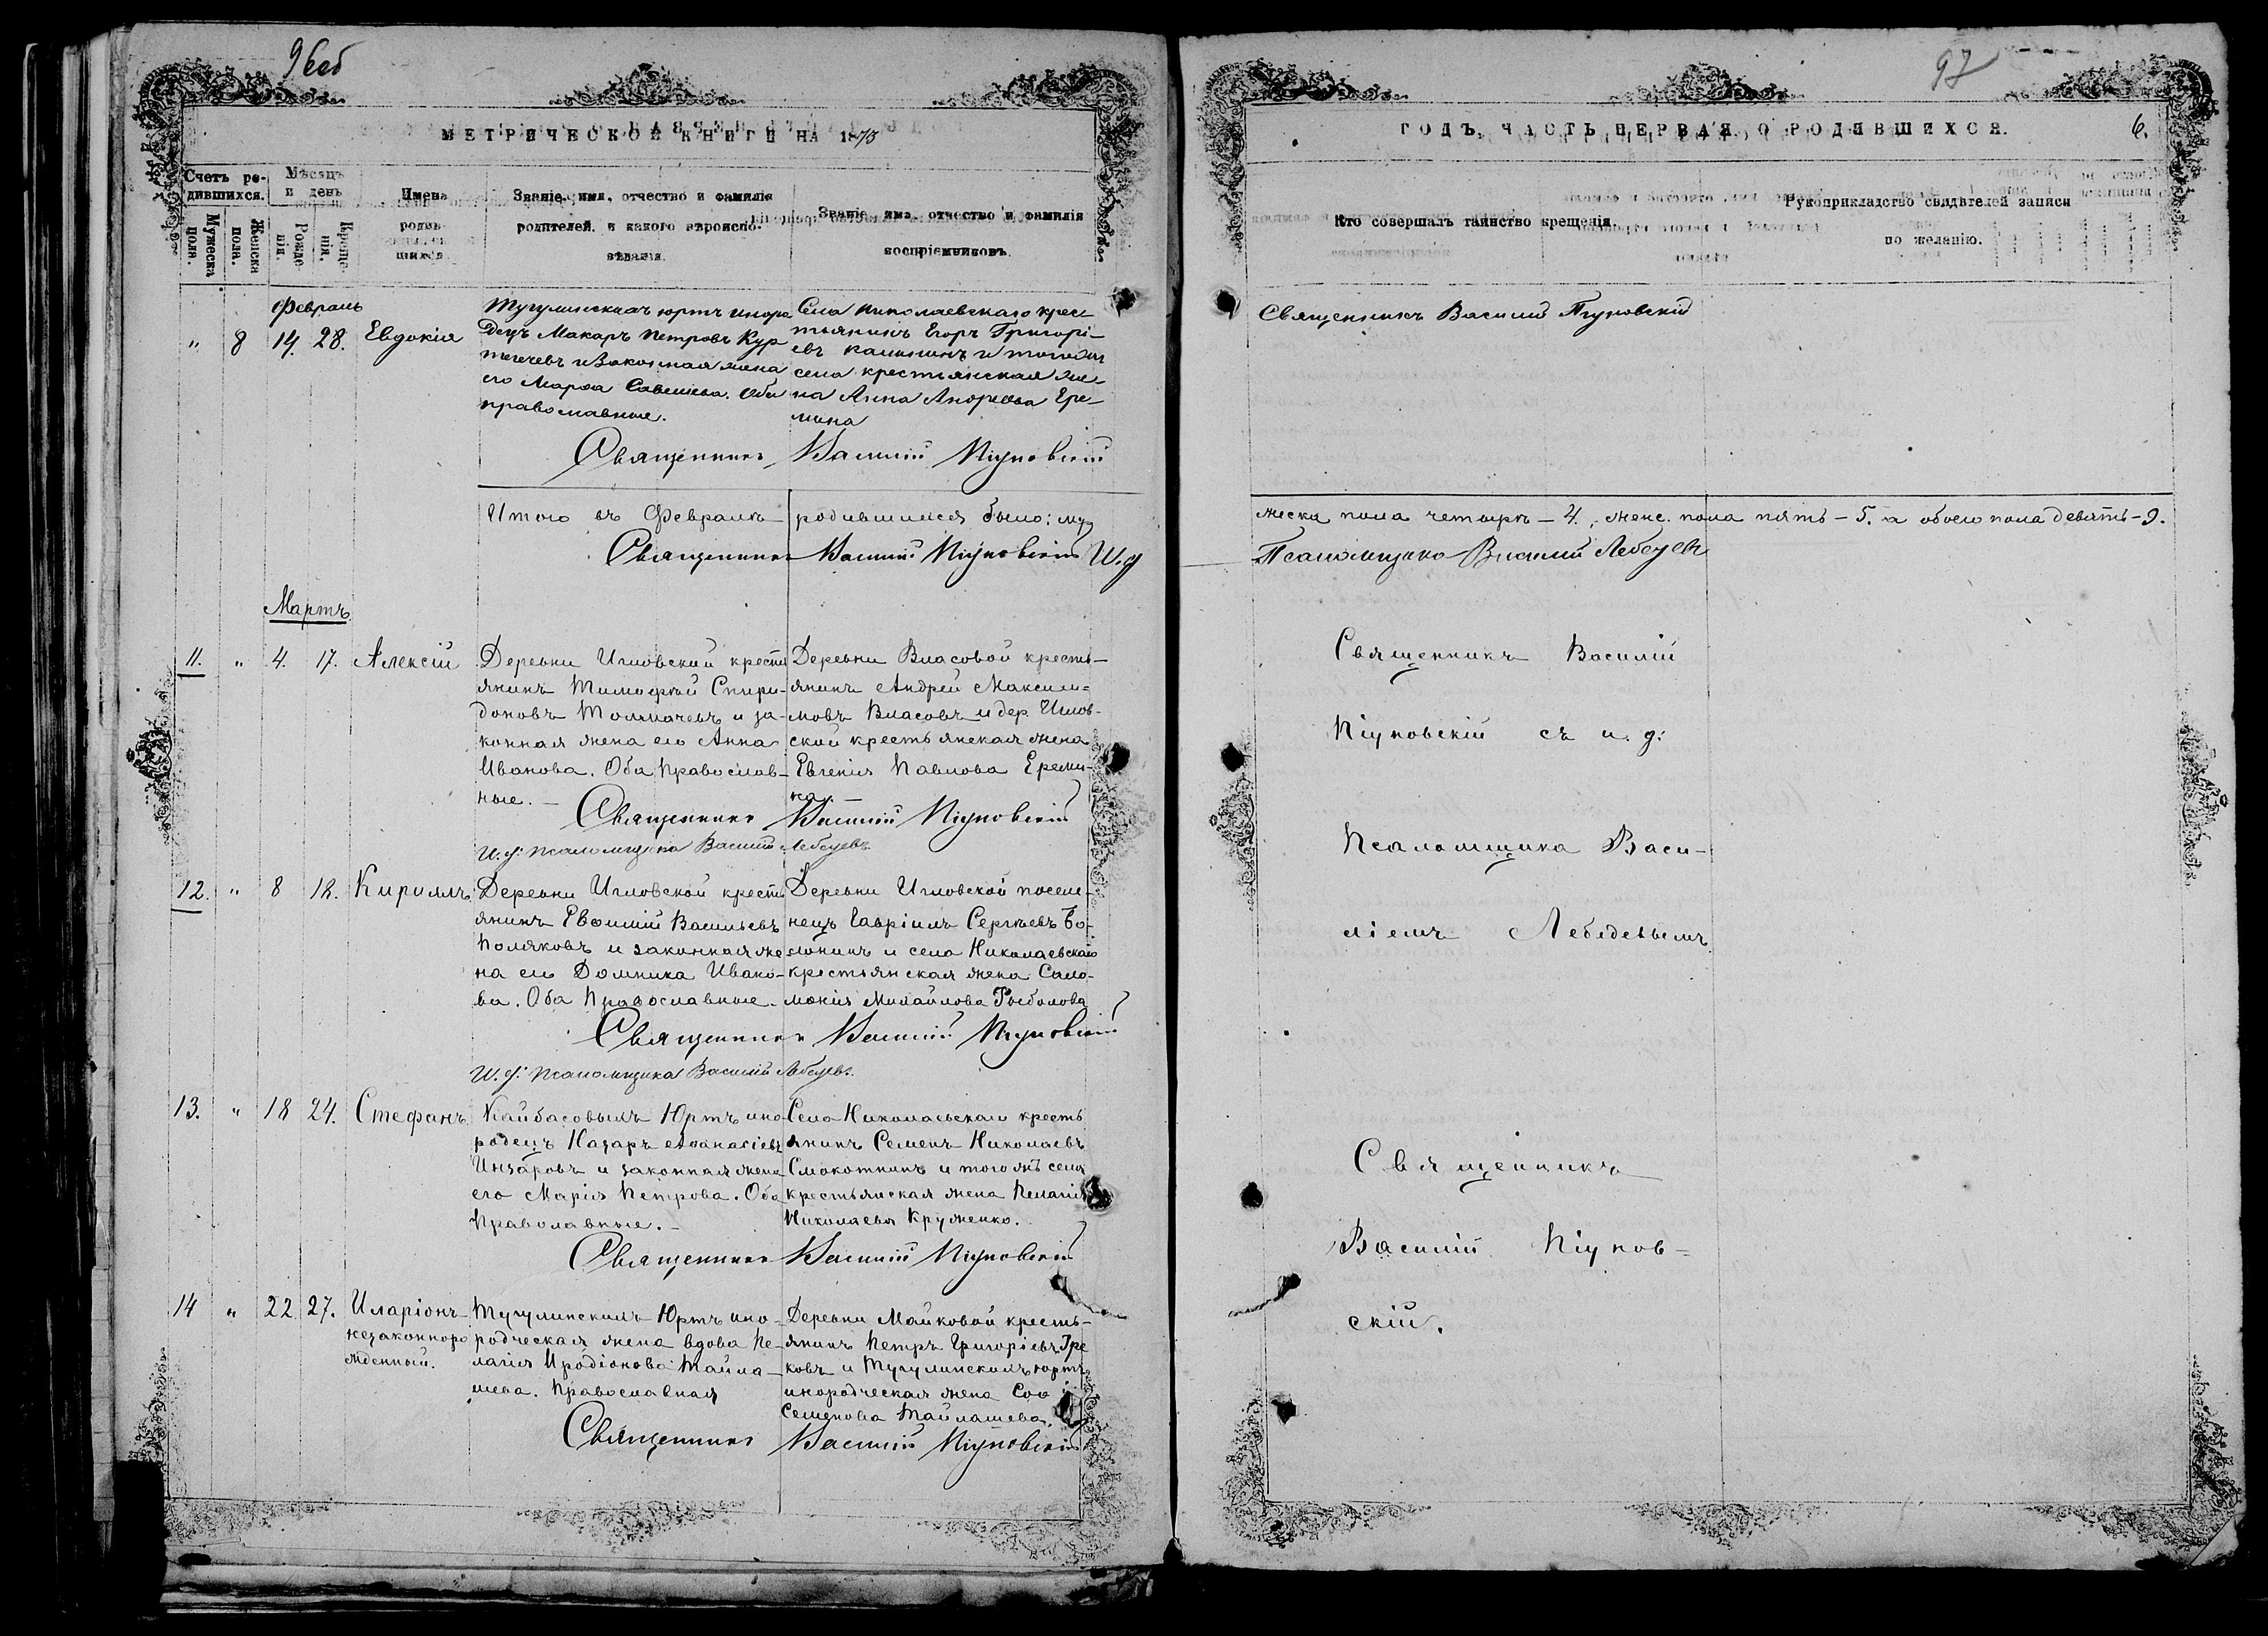 96об
МЕТРИЧЕСКОЙ КНИГИ НА 1875
Счетъ ро-
дившихся.
Мѣсяцъ
и день
Мужеска
пола.
Женска
пола.
Рожде
нія.
Креще
нія.
Имена
родив-
шихся.
Званіе, имя, отчество и фамилія
родителей, и какого вѣроиспо-
вѣданія.
Званіе, имя, отчество и фамилія
воспріемниковъ.
Февраль
" 8 14. 28. Евдокія
Тугулинскихъ юртъ иноро
децъ Макаръ Петровъ Кур
и законная жена
его Марѳа Савельева. Оба
православные.
Села Николаевскаго крес
тьянинъ Егоръ Григорі-
евъ Калининъ и тогоже
села крестьянская же-
на Анна Андреева Ере-
мина
Священникъ Василій Пѣуновскій
Итого въ Февралѣ родившихся было: му
Священникъ Василій Пѣуновскій И. д
Мартъ
11. " 4. 17. Алексій
Деревни Игловский кресть
янинъ Тимофѣй Спири-
доновъ Толмачевъ и за-
конная жена его Анна
Иванова. Оба православ-
ные. —
Деревни Власовой кресть-
янинъ Андрей Максим-
овъ Власовъ и дер. Иглов-
ской крестьянская жена
Евгенія Павлова Ереми-
на. —
Священникъ Василій Пѣуновскій
И. д: псаломщика Василій Лебедевъ
12. " 8 18. Кириллъ
Деревни Игловской кресть
янинъ Евѳимій Васильевъ
Поляковъ и законная же
на его Домника Ивано-
ва. Оба Православные.
Деревни Игловской поселе-
нецъ Гавріилъ Сергѣевъ Бо-
лонинъ и села Николаевскаго
крестьянская жена Соло-
монія Михайлова Рыболова
Священникъ Василій Пѣуновскій
И. д: псаломщика Василій Лебедевъ.
13. " 18 24. Стефанъ
Кайбасовыхъ Юртъ ино
родецъ Назаръ Аѳанасіевъ
Инзаровъ и законная жена
его Марія Петрова. Оба
Православные. -
Села Николаевскаго кресть
янинъ Семенъ Николаевъ
Смокотнинъ и того жъ села
крестьянская жена Пелагія
Николаева Круженко.
Священникъ Василій Пѣуновскій
14 " 22 27. Иларіонъ
незаконноро
жденный.
Тугулинскихъ Юртъ ино-
родческая жена вдова Пе-
лагія Иродіонова Тайла-
шева. Православная
Деревни Майковой кресть-
янинъ Петръ Григоріевъ Гре
ковъ и Тугулинскихъ юртъ
инородческая жена Соѳі
Семенова Тайлашева.
Священникъ Василій Пѣуновскій
97
ГОДЪ, ЧАСТЬ ПЕРВАЯ, О РОДИВШИХСЯ. 6.
Кто совершалъ таинство крещенія.
Рукоприкладство свидѣтелей записи
по желанію.
Священникъ Василій Пѣуновскій
жеска пола четыре — 4., женс. пола пять — 5. а обоего пола девять - 9.
Псаломщика Василій Лебедевъ
Священникъ Василій
Пѣуновскій съ и. д:
Псаломщика Васи-
ліемъ Лебедевымъ.
Священникъ
Василій Пѣунов-
скій.